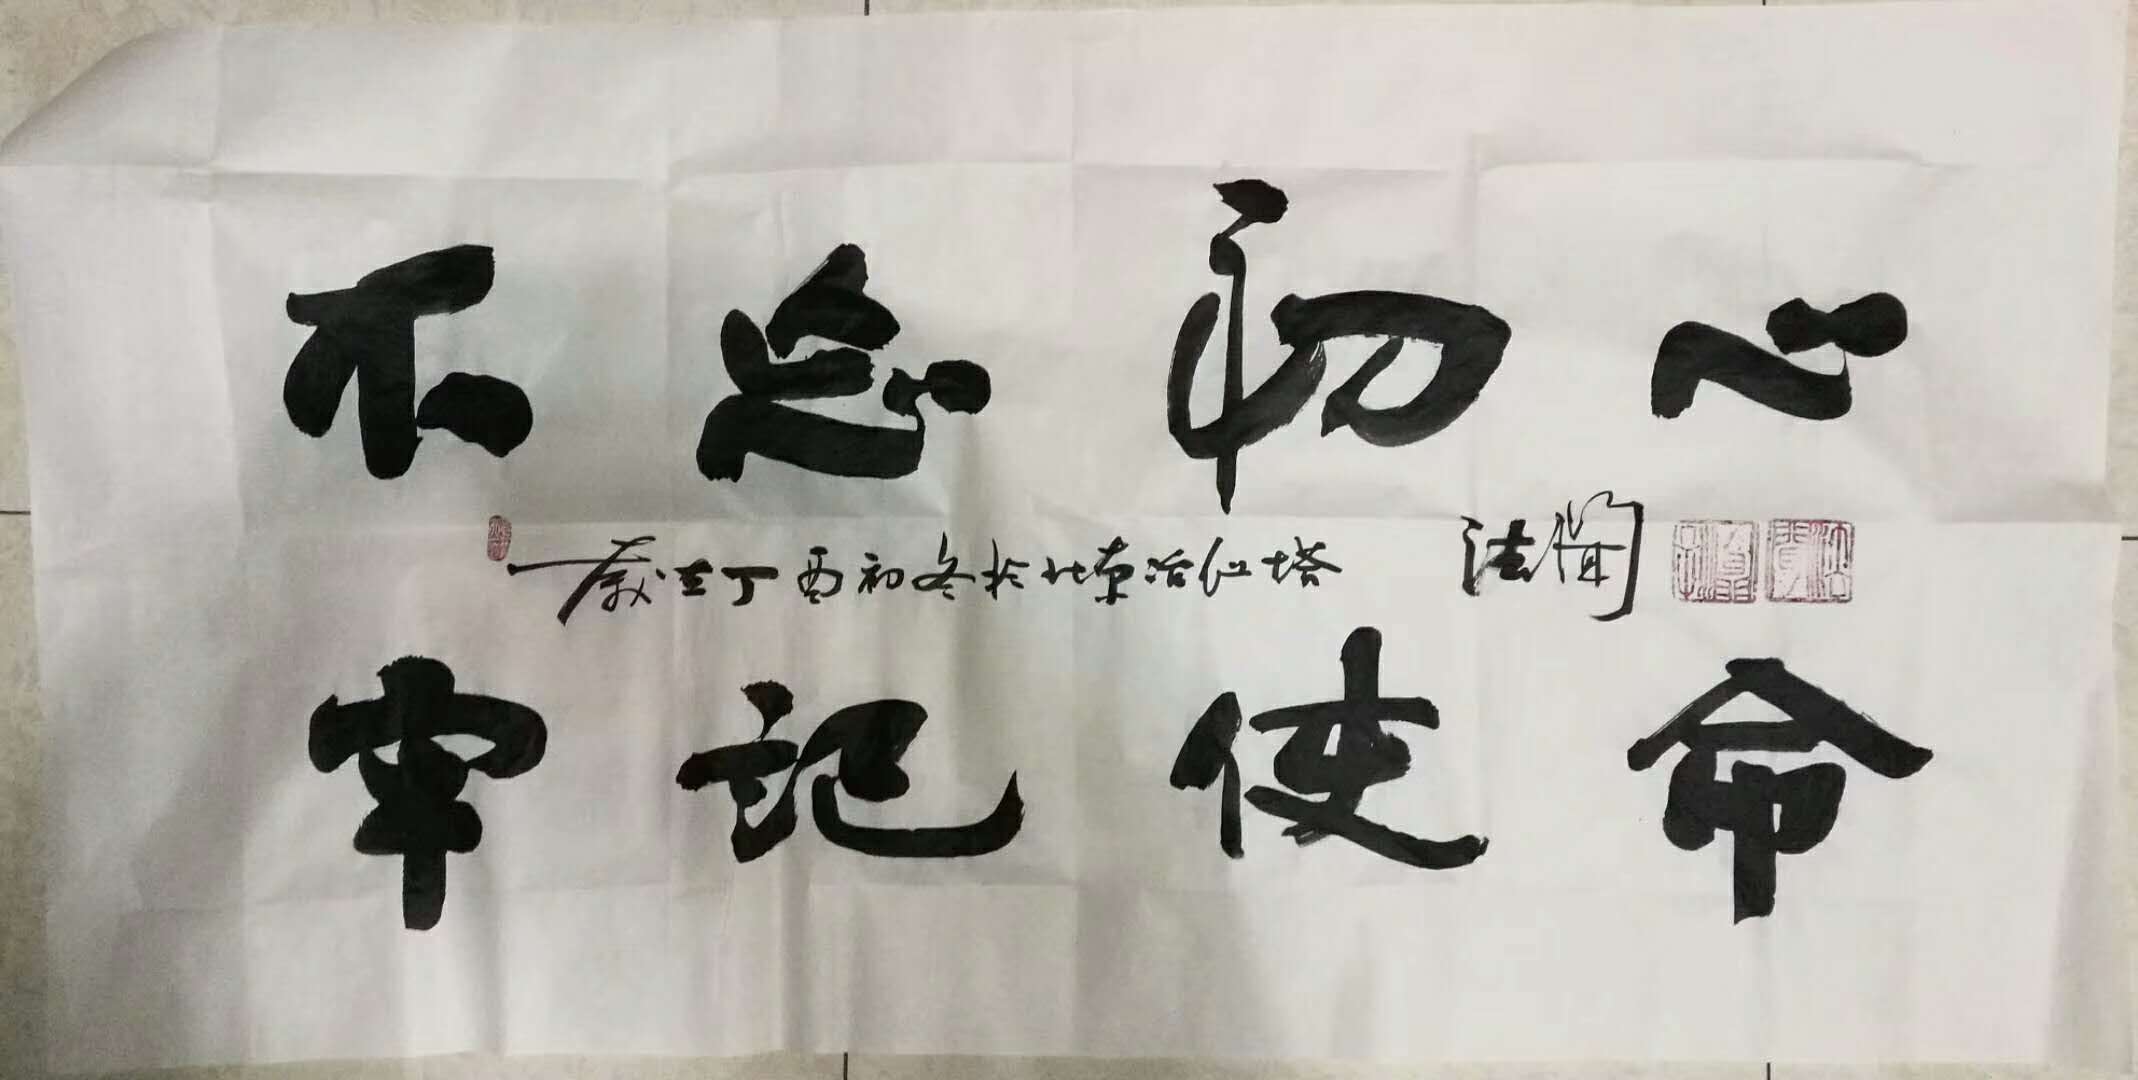 不忘初心
歲在丁酉初冬於北京治仙塔 法闻
牢记使命